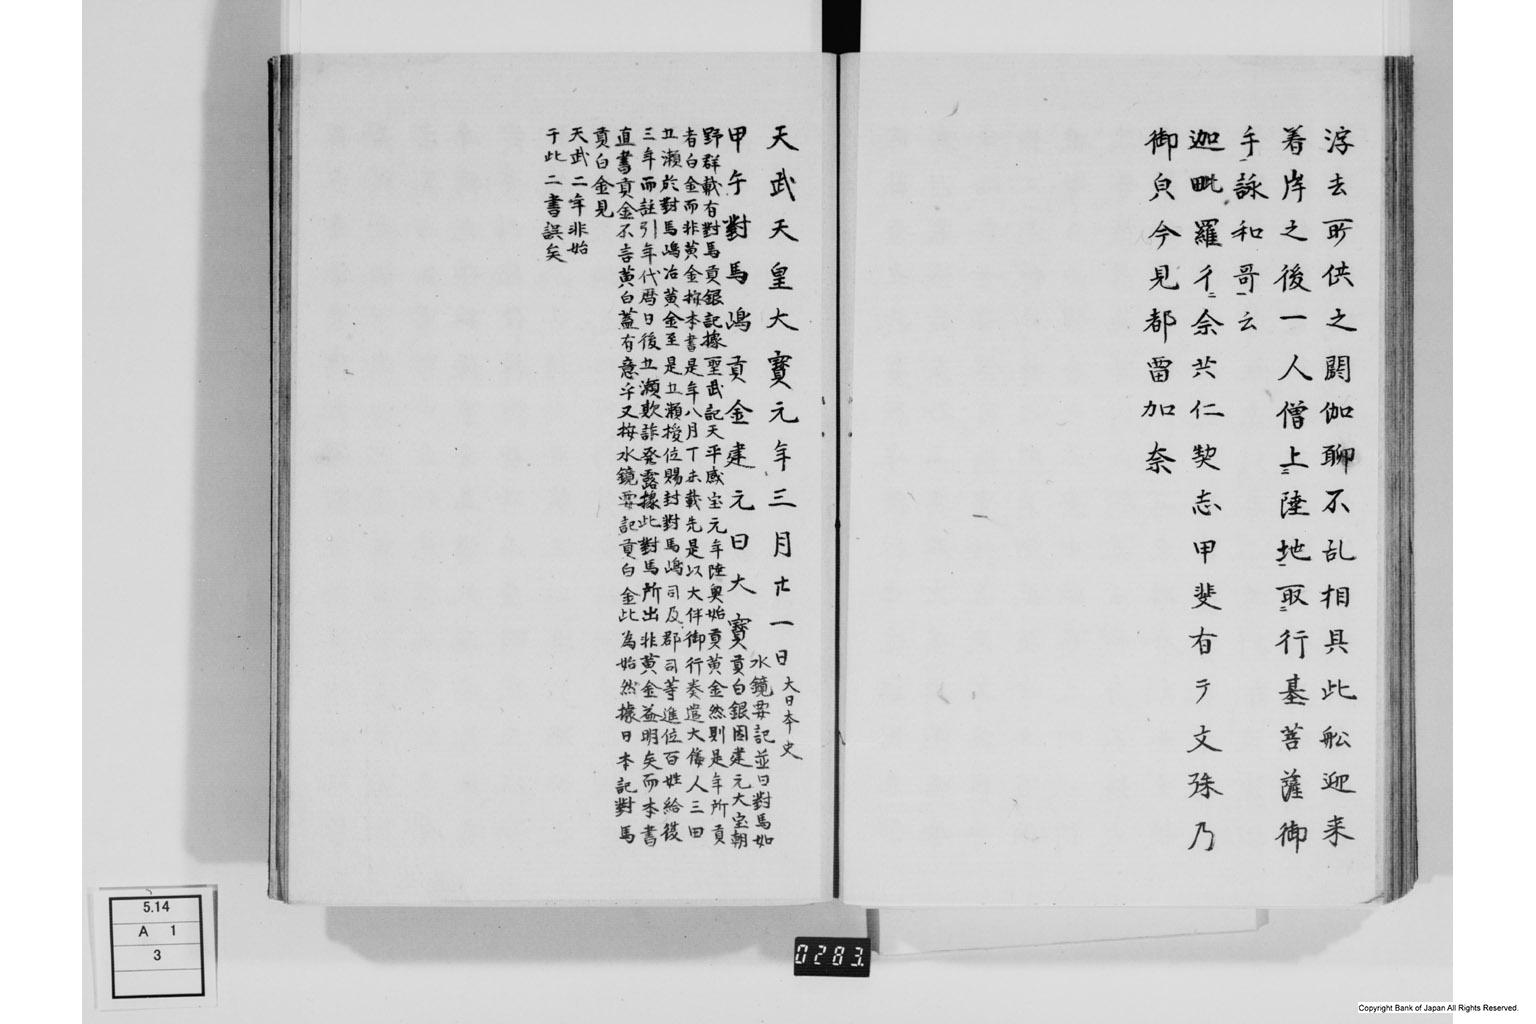 浮去所供之閼伽聊不乱相具此舩迎来
着岸之後一人僧上陸地取行基菩薩御
手詠和哥云
迦毗羅衛尓余共仁契志甲斐有テ文殊乃
御皃今見都留加奈
天武天皇大寶元年三月廿一日 大日本史
甲午對馬嶋貢金建元曰大寶
水鏡要記並曰對馬如
貢白銀因建元大宝朝
野群載有對馬貢銀記據聖武記天平感宝元年陸奥始貢黄金然則是年所貢
者白金而非黄金按本書是年八月丁未載先是以大伴御行奏遣大倭人三田
五瀬於對馬嶋冶黄金至是五瀬授位賜封對馬嶋司及郡司等進位百姓給復
三年而註引年代暦曰後五瀬欺詐発露據此對馬所出非黄金益明矣而本書
直書貢金不言黄白蓋有意乎又按水鏡要記貢白金此為始然據日本記對馬
貢白金見
天武二年非始
于此二書誤矣
5.14
A 1
3
0283
Copyright Bank of Japan All Rights Reserved.